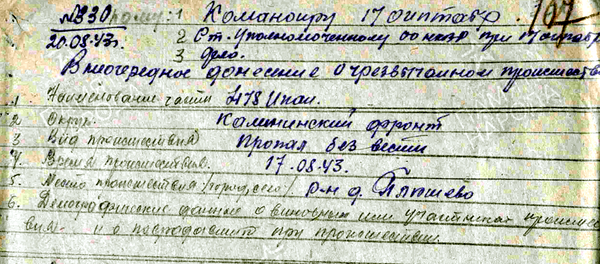 №330 Кому: 1 Командиру 17 оиптабр 107
20.08.43г. 2 Ст. Уполномоченному оо нквд при 17 оиптабр
3 дело.
Внеочередное донесение о чрезвычайном происшестви
1 Наименование части 478 Иптап.
2 Округ. Калининский фронт
3 Вид происшествия Пропал без вести
4. Время происшествия. 17.08.43.
5. Место происшествия /город, село/ р-н д.
6. Демографические данные о виновных или участниках происшес
вия. и о пострадавших при происшествии.